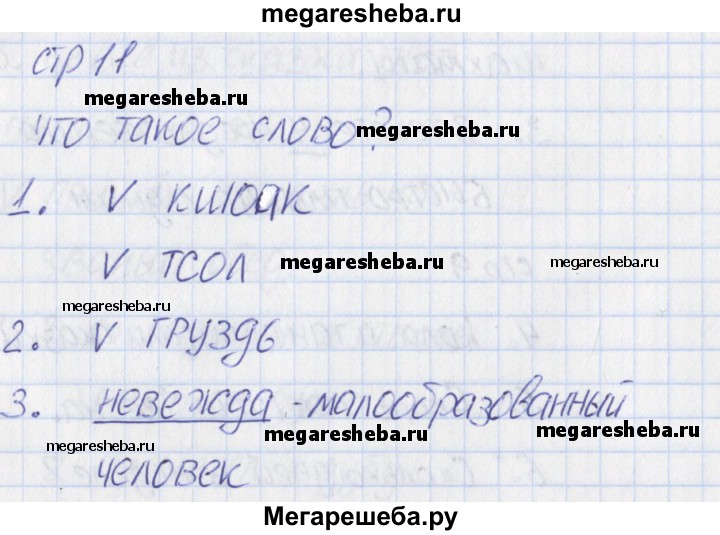 megaresheba.ru
стр 11
megaresheba.ru
что такое слово?
megaresheba.ru
1. V кшоак
V тсол
megaresheba.ru
megaresheba.ru
megaresheba.ru
2. V груздь
3. невежда - малообразованный
megaresheba.ru
megaresheba.ru
megaresheba.ru
человек
Мегарешеба.ру